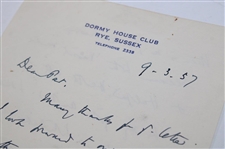 DORMY HOUSE CLUB
RYE, SUSSEX
TELEPHONE 2338
9-3.57
Dear Pat.
Many thanks for yr letter
I look forward to